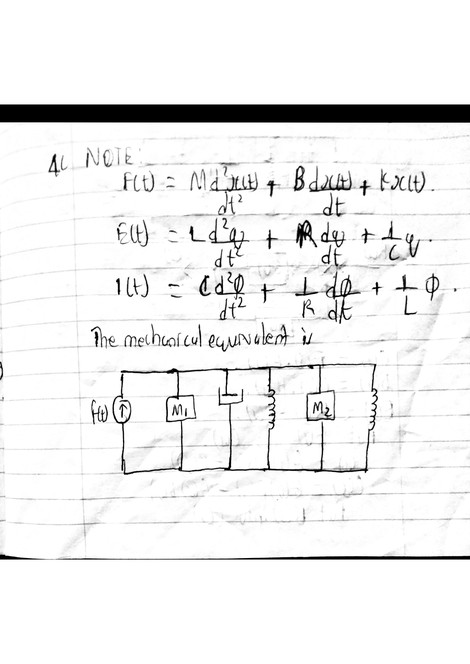 4c NOTE:
F(t) = M d²x(t)/dt² + B dx(t)/dt + K x(t).
E(t) = L d²q/dt² + R dq/dt + 1/C q.
I(t) = C d²φ/dt² + 1/R dφ/dt + 1/L φ.
The mechanical equivalent is
f(t) M₁ M₂